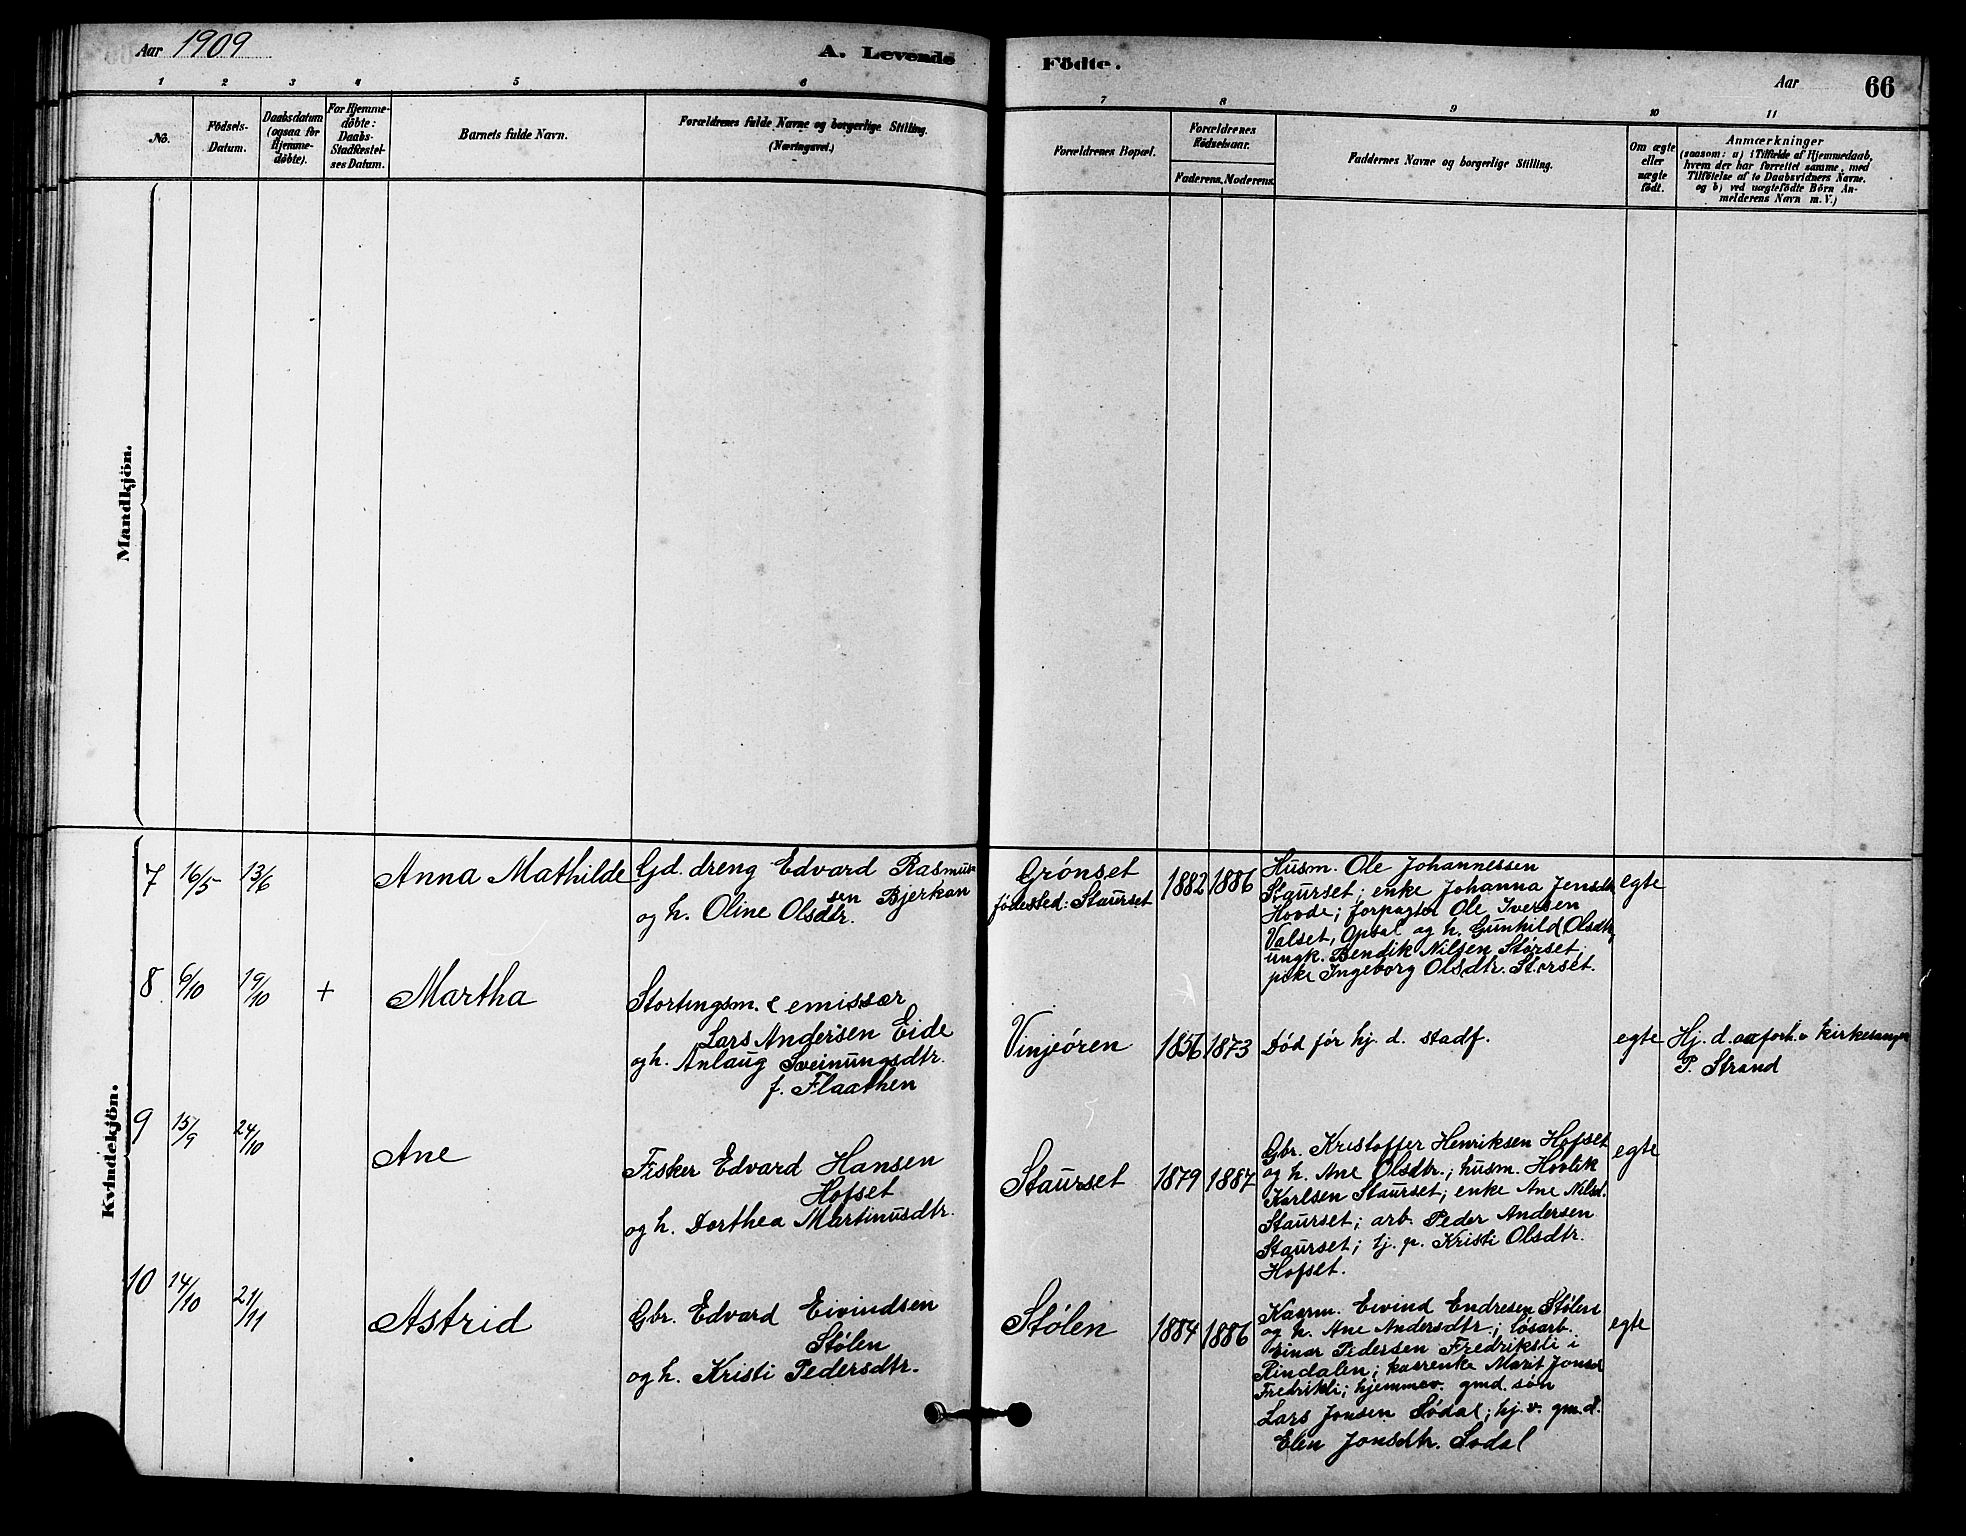 Aar 1909
A. Levende
Födte.
Aar
66
1
2
3
4
5
6
7
8
9
10
11
No.
Födsels-
Datum.
Daabsdatum
(ogsaa for
Hjemme-
döbte).
For Hjemme-
döbte:
Daabs-
Stadfæstel-
ses Datum.
Barnets fulde Navn.
Forældrenes fulde Navne og borgerlige Stilling.
(Næringsvei.)
Forældrenes Bopæl.
Forældrenes
Födselsaar.
Faderens.
Moderens.
Faddernes Navne og borgerlige Stilling.
Om ægte
eller
uægte
födt.
Anmærkninger
(saasom: a) i Tilfælde af Hjemmedaab,
hvem der har forrettet samme, med
Tilföielse af to Daabsvidners Navne.
og b) ved uægtefödte Börn An-
melderens Navn m. V.)
Mandkjön.
Kvindekjön.
7
16/5
13/6
Anna Mathilde
Gd. dreng Edvard Rasmus-
sen Bjerkan
og h. Oline Olsdtr.
Grönset
födested: Staurset
1882
1886
Husm. Ole Johannessen
Staurset; enke Johanna Jensdtr.
Hovde; forpagter Ole Iversen
Valset, Opsal og h. Gunhild Olsdtr,
ungk. Bendik Nilsen Störset,
pike Ingeborg Olsdtr. Störset.
egte
8
6/10
19/10
+
Martha
Stortingsm. & emissær
Lars Andersen Eide
og h. Anlaug Sveinungsdtr.
f. Flaathen
Vinjeören
1856
1873
Död för hj. d. stadf.
egte
Hj. d. forh. v kirkesanger
P. Strand
9
15/9
24/10
Ane
Fisker Edvard Hansen
Hofset
og h. Dorthea Martinusdtr.
Staurset
1879
1887
Gbr. Kristoffer Henriksen Hofset
og h. Ane Olsdtr.; husm. Hovlik
Karlsen Staurset; enke Ane Nilsd.
Staurset; arb. Peder Andersen
Staurset; tj. p. Kristi Olsdtr.
Hofset.
egte
10
14/10
21/11
Astrid
Gbr. Edvard Eivindsen
Stølen
og h. Kristi Pedersdtr.
Stølen
1884
1886
Kaarm. Eivind Endresen Stølen
og h. Ane Andersdtr.; løsarb.
Einar Pedersen Fredriksli i
Rindalen; kaarenke Marit Jonsd
Fredrikli; hjemmev. gmd. søn
Lars Jonsen Sødal; hj. v. gm. d.
Elen Jonsdtr. Sødal
egte